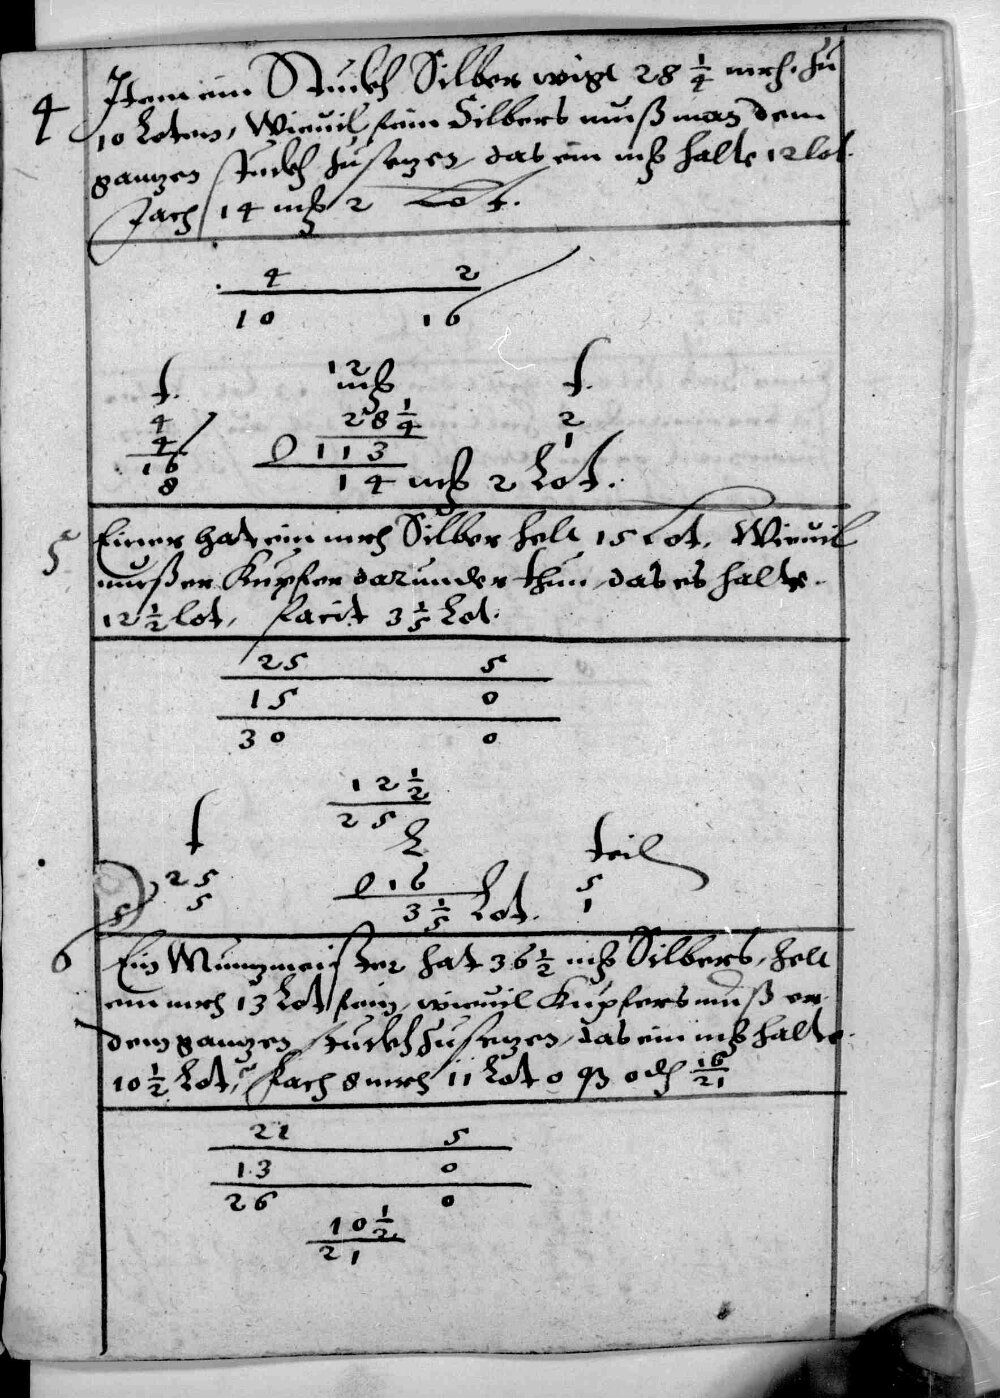 4 Item ein Stuckh Silber wigt 28 1/4 mrh. zu
10 Loten, Wieuil fein Silbers muß man dem
gantzen stuckh zusetzen das ein mß halte 12 lot.
fach 14 mß 2 Lot.
4 2
10 16
12
f. mß f.
4 28 1/4 2
4 0 113 1
16 14 mß 2 Lot.
8
5 Einer hat ein mrh Silber helt 15 Lot, Wieuil
muß er Kupfer darunder thun, das es halte
12 1/2 lot, facit 3 1/5 Lot.
25 5
15 0
30 0
12 1/2
25
f L teil
25 0 16 5
5 3 1/5 Lot. 1
6 Ein Muntzmeister hat 36 1/2 mß Silbers, helt
ein mrh 13 Lot fein, wieuil Kupfers muß er
dem gantzen stuckh zusetzen, das ein mß halte
10 1/2 Lot, fach 8 mrh 11 Lot 0 q 0 16/21
21 5
13 0
26 0
10 1/2
21